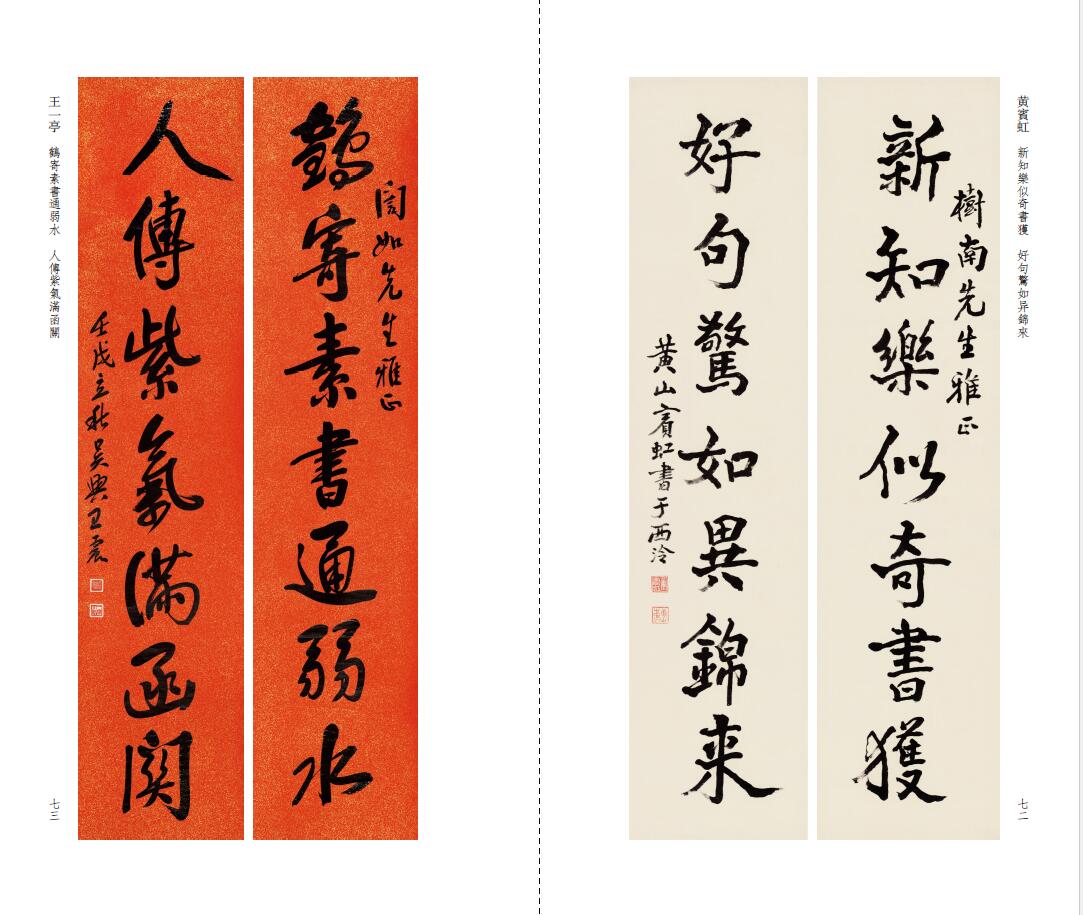 黄賓虹 新知樂似奇書獲 好句驚如异錦來
七二
樹南先生雅正
新知樂似奇書獲
好句驚如異錦来
黄山賓虹書于西泠
如先生雅正
鶴寄素書通弱水
人傳紫氣滿函関
壬戌立秋吴興王震
王一亭 鶴寄素書通弱水 人傳紫氣滿函關
七三